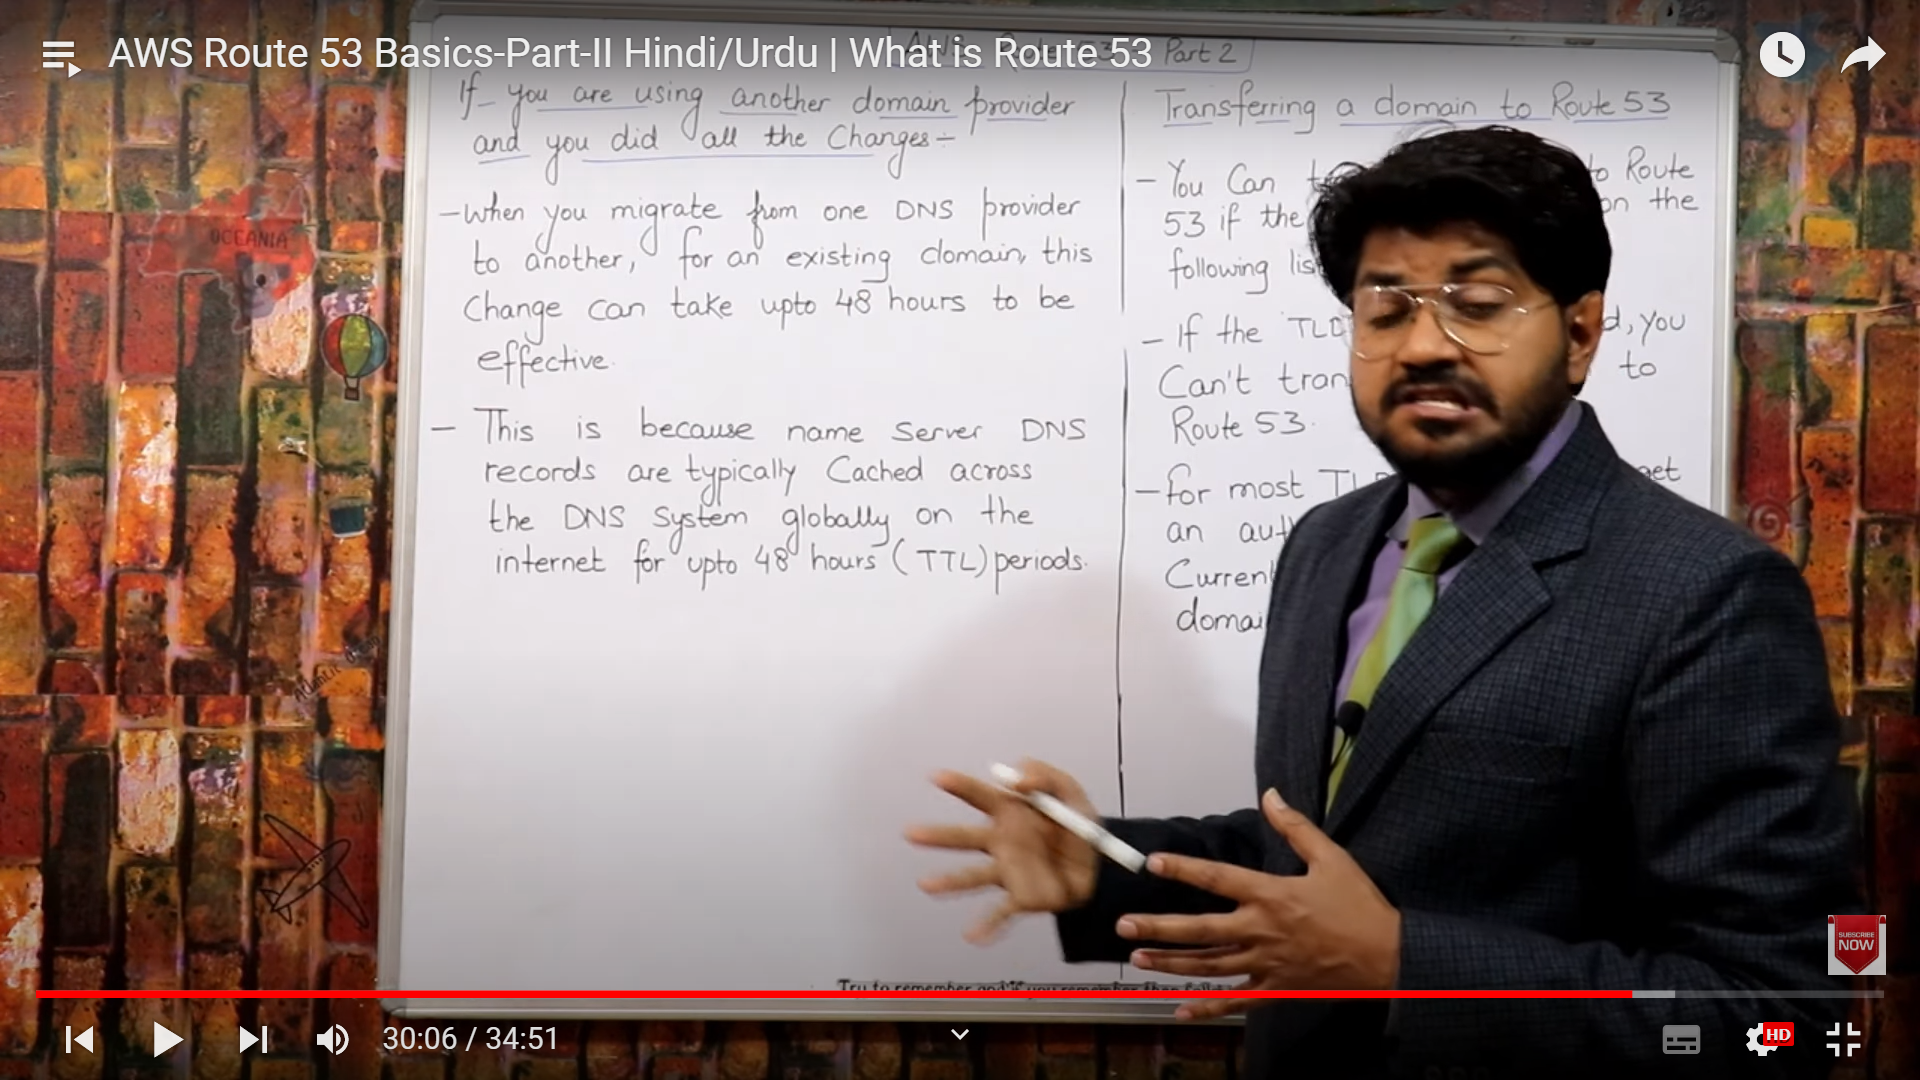 AWS Route 53 Basics-Part-II Hindi/Urdu | What is Route 53
Part 2
If you are using another domain provider
and you did all the Changes:-
- When you migrate from one DNS provider
to another, for an existing domain, this
Change can take upto 48 hours to be
effective.
- This is because name Server DNS
records are typically Cached across
the DNS System globally on the
internet for upto 48 hours (TTL) periods.
Transferring a domain to Route 53
- You Can to Route
53 if the on the
following
- If the you
Can't to
Route 53.
- For most
an
domain
OCEANIA
Try to remember and if you remember then
SUBSCRIBE
NOW
30:06 / 34:51
HD